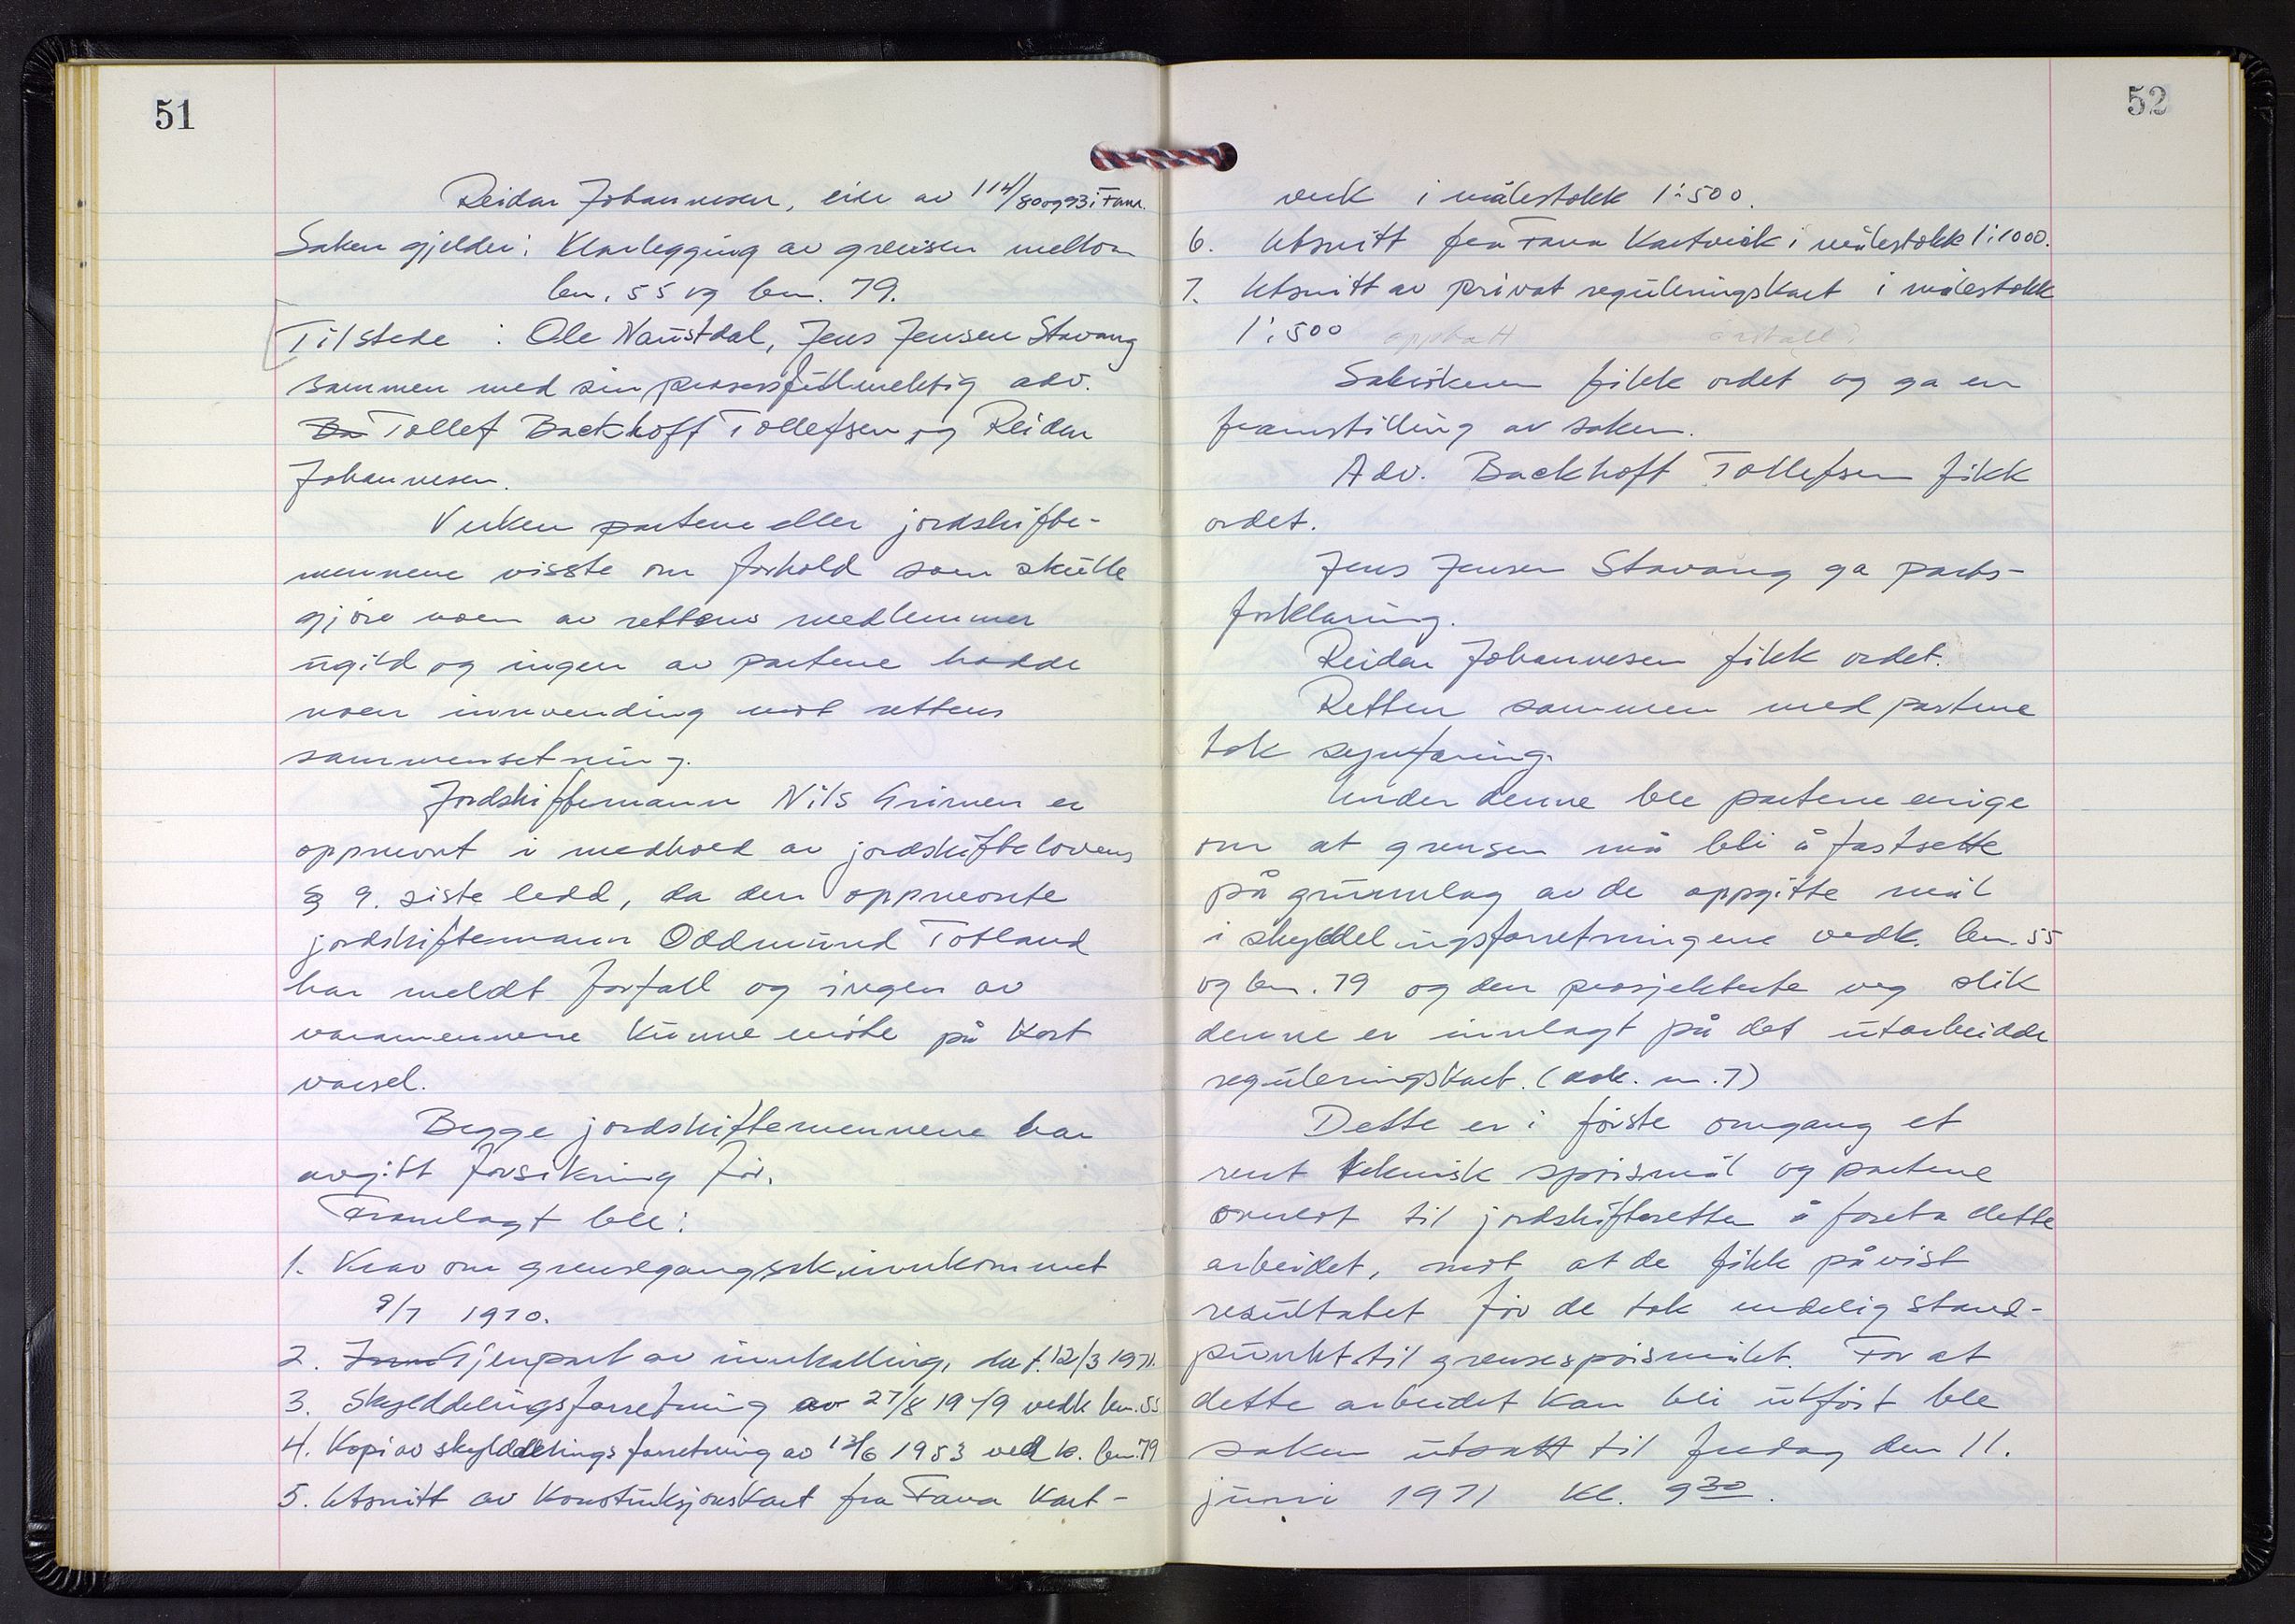 51
Reidar Johannesen, eier av 114/80 og 93 i Fana.
Saken gjelder: Klarlegging av grensen mellom
bn. 55 og bn. 79.
Tilstede : Ole Naustdal, Jens Jensen Stavang
sammen med sin prosessfullmektig adv.
Ba Tollef Backhoff Tollefsen og Reidar
Johannesen.
Verken partene eller jordskifte-
mennene visste om forhold som skulle
gjøre noen av rettens medlemmer
ugild og ingen av partene hadde
noen innvending mot rettens
sammensetning.
Jordskiftemann Nils Grimen er
oppnevnt i medhold av jordskiftelovens
§ 9. siste ledd, da den oppnevnte
jordskiftemann Oddmund Totland
har meldt forfall og ingen av
varamennene kunne møte på kort
varsel.
Begge jordskiftemennene har
avgitt forsikring før.
Framlagt ble:
1. Krav om grensegangssak innkommet
9/7 1970.
2. Gjenpart av innkalling, dat. 12/3 1971.
3. Skylddelingsforretning av 27/8 1949 vedk bn. 55
4. Kopi av skylddelingsforretning av 12/6 1953 vedk. bn. 79
5. Utsnitt av Konstruksjonskart fra Fana Kart-
52
verk i målestokk 1:500.
6. Utsnitt fra Fana Kartverk i målestokk 1:1000.
7. Utsnitt av privat reguleringskart i målestokk
1:500
Saksøkeren fikk ordet og ga en
framstilling av saken.
Adv. Backhoff Tollefsen fikk
ordet.
Jens Jensen Stavang ga parts-
forklaring.
Reidar Johannesen fikk ordet.
Retten sammen med partene
tok synfaring.
Under denne ble partene enige
om at grensen må bli å fastsette
på grunnlag av de oppgitte mål
i skylddelingsforretningene vedk. bn. 55
og bn. 79 og den prosjekterte veg slik
denne er innlagt på det utarbeidde
reguleringskart. (dok. nr. 7)
Dette er i første omgang et
rent teknisk spørsmål og partene
overlot til jordskifteretten å foreta dette
arbeidet, mot at de fikk påvist
resultatet før de tok endelig stand-
punkt til grensespørsmålet. For at
dette arbeidet kan bli utført ble
saken utsatt til fredag den 11.
juni 1971 kl. 9 30.